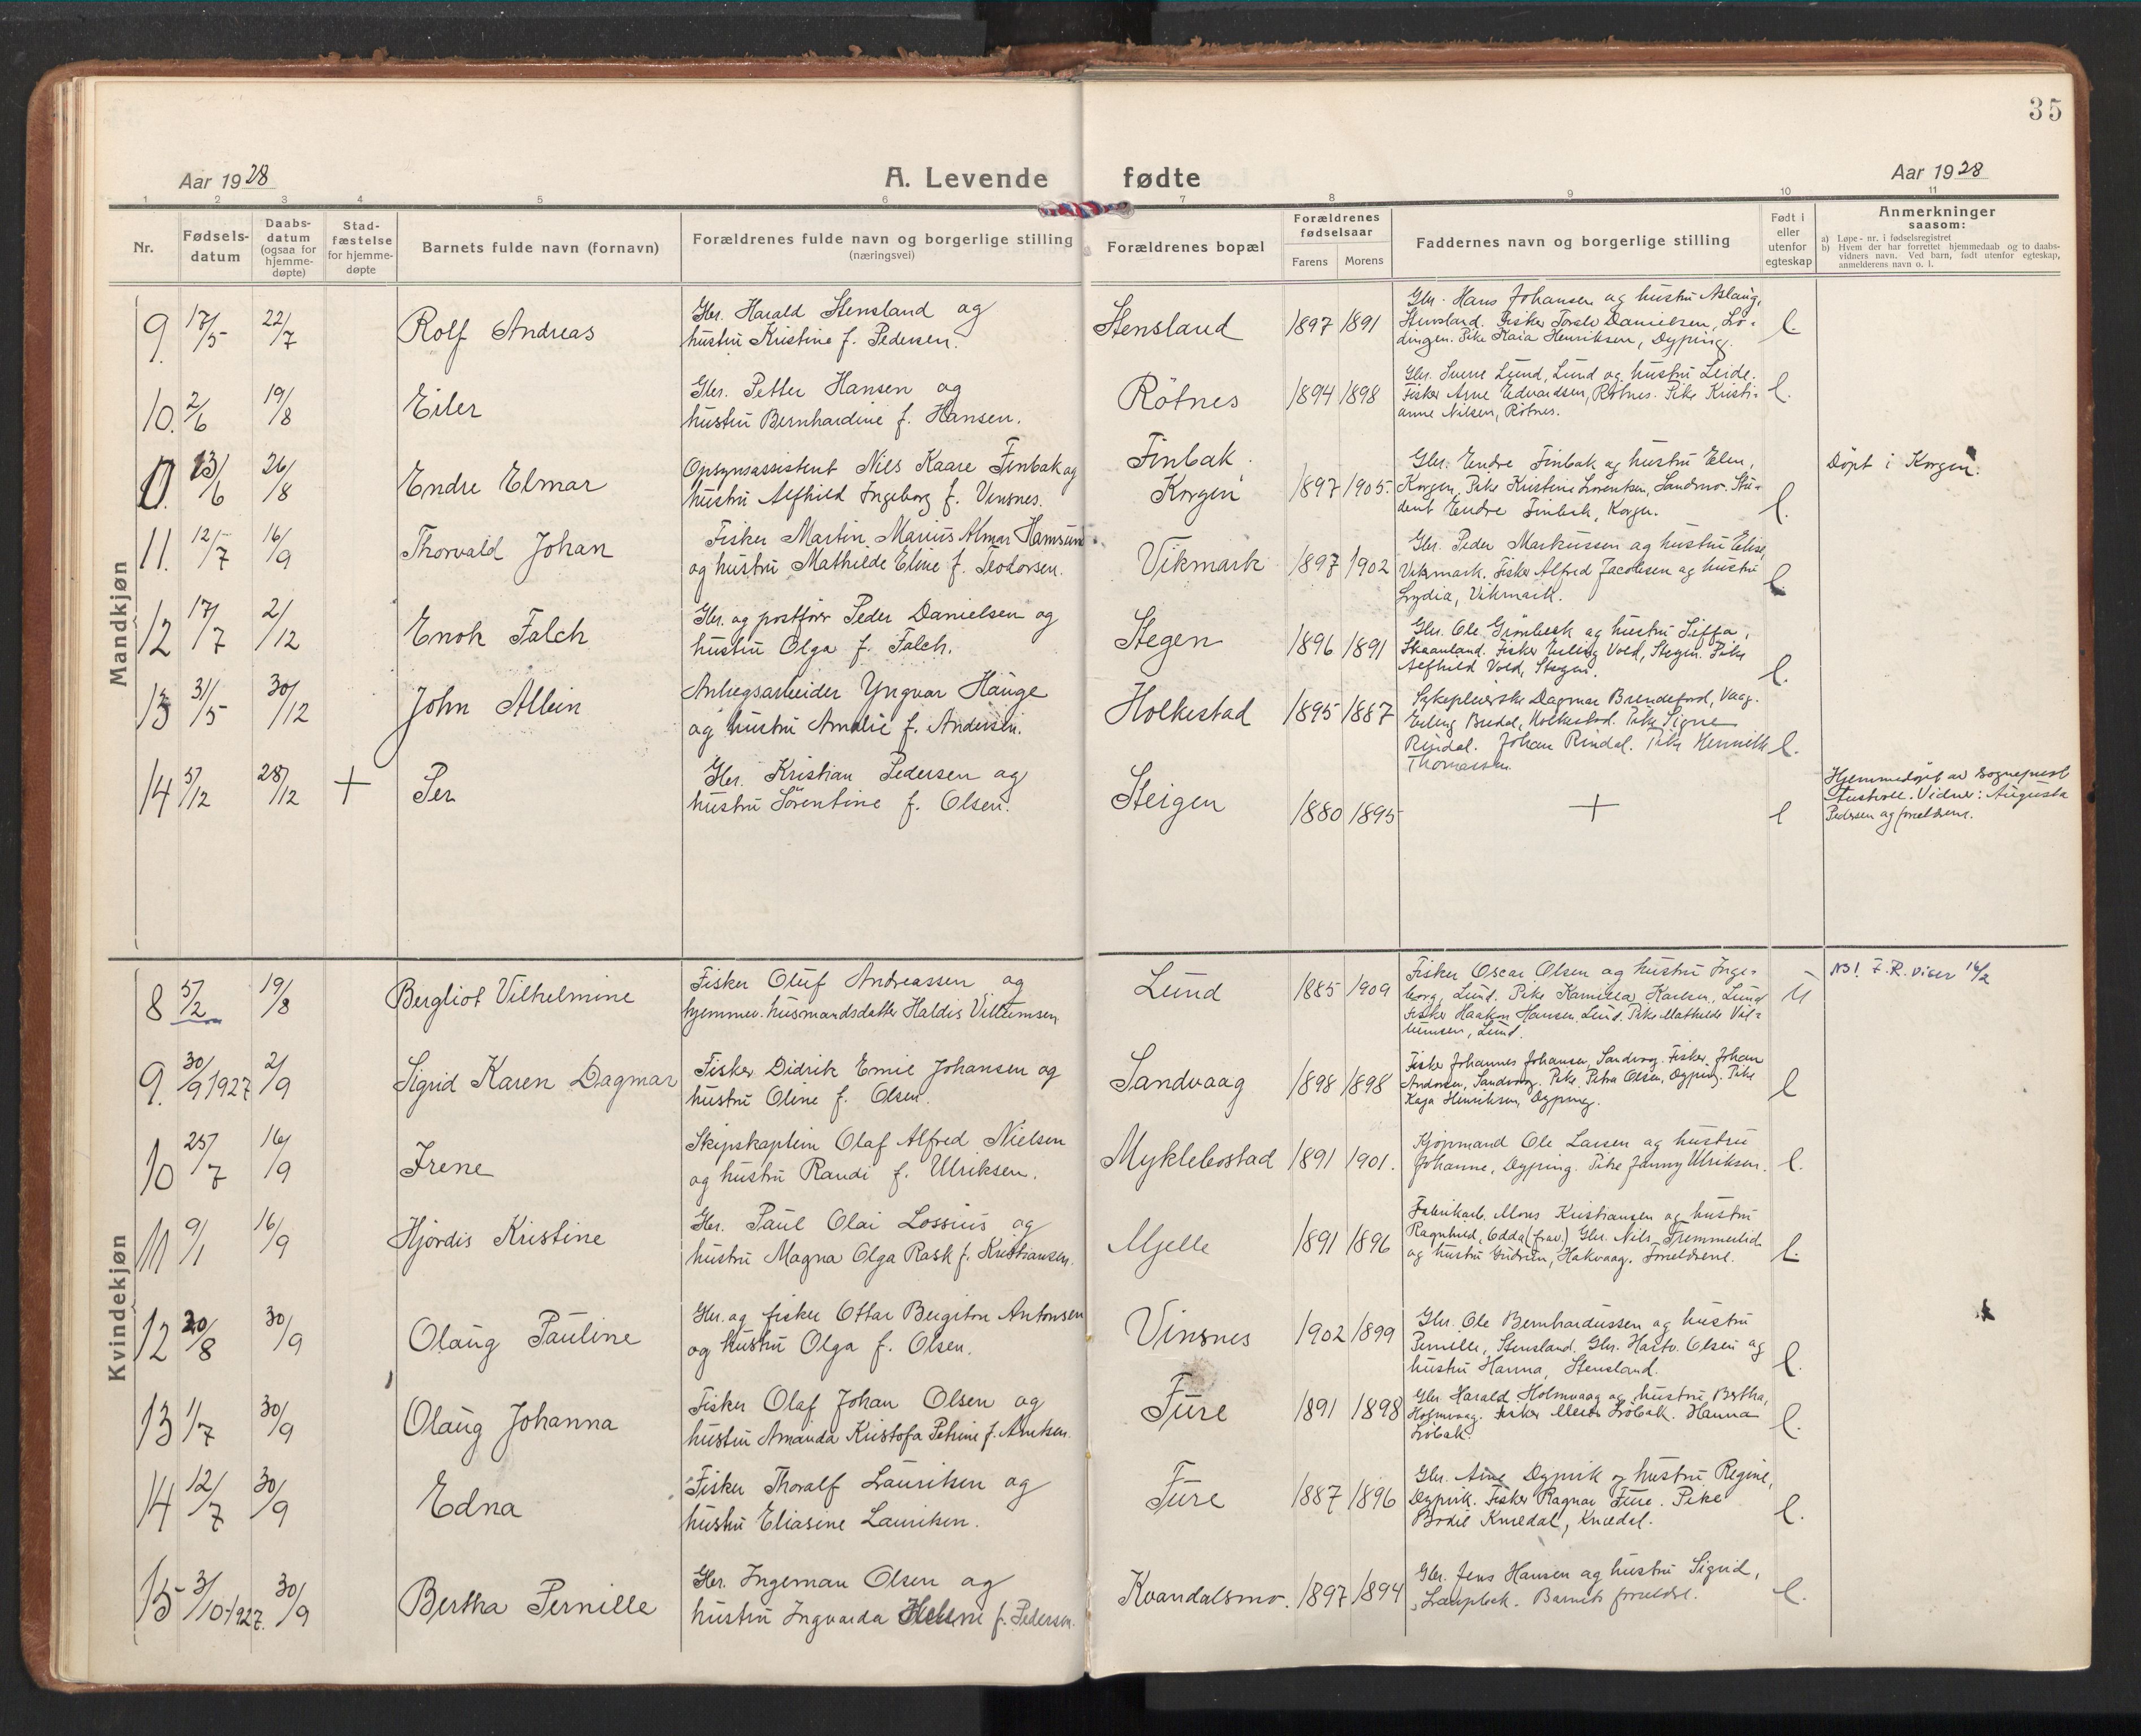 35
Aar 1928
A. Levende fødte
Aar 1928
1 2 3 4 5 6 7 8 9 10 11
Nr.
Fødsels-
datum
Daabs-
datum
(ogsaa for
hjemme-
døpte)
Stad-
fæstelse
for hjemme-
døpte
Barnets fulde navn (fornavn)
Forældrenes fulde navn og borgerlige stilling
(næringsvei)
Forældrenes bopæl
Forældrenes
fødselsaar
Farens Morens
Faddernes navn og borgerlige stilling
Født i
eller
utenfor
egteskap
Anmerkninger
saasom:
a) Løpe-nr. i fødselsregistret
b) Hvem der har forrettet hjemmedaab og to daabs-
vidners navn. Ved barn, født utenfor egteskap,
anmelderens navn o. l.
Mandkjøn
9. 17/5 22/7 Rolf Andreas
Gbr. Harald Stensland og
hustru Kristine f. Pedersen.
Stensland 1897 1891
Gbr. Hans Johansen og hustru Aslaug,
Stensland. Fisker Torolv Danielsen, Lø-
dingen. Pike Kaia Henriksen, Dyping.
l.
10. 2/6 19/8 Eiler
Gbr. Petter Hansen og
hustru Bernhardine f. Hansen.
Rötnes 1894 1898
Gbr. Sverre Lund, Lund og hustru Leide.
Fisker Arne Edvardsen, Rötnes. Pike Kristi-
anne Nilsen, Rötnes.
l.
0. 13/6 26/8 Endre Elmar
Opsynsassistent Nils Kaare Finbak og
hustru Alfhild Ingeborg f. Vinsnes.
Finbak.
Korgen 1897 1905.
Gbr. Endre Finbak og hustru Elen,
Korgen, Pike Kristine Lorentsen, Sandmo. Stu-
dent Endre Finbak, Korgen.
l.
Döpt i Korgen.
11. 12/7 16/9 Thorvald Johan
Fisker Martin Marius Almar Hamsund
og hustru Mathilde Eline f. Teodorsen.
Vikmark 1897 1902
Gbr. Peder Markussen og hustru Elise,
Vikmark. Fisker Alfred Jacobsen og hustru
Lydia, Vikmark.
l
12 17/7 2/12 Enok Falch
Gbr. og postfører Peder Danielsen og
hustru Olga f. Falch.
Stegen 1896 1891
Gbr. Ole Grönbeck og hustru Siffa,
Skaanland. Fisker Erling Vold, Stegen. Pike
Alfhild Vold, Stegen.
l.
13 31/5 30/12 John Albin
Anlegsarbeider Yngvar Hauge
og hustru Amalie f. Andersen.
Holkestad 1895 1887
Sykepleierske Dagmar Brendeford, Vaag.
Erling Bredal, Holkestad. Pike Signe
Rindal. Johan Rindal. Pike Henrikk
Thomassen.
l.
14 5/12 28/12 + Per
Gbr. Kristian Pedersen og
hustru Sörentine f. Olsen.
Steigen 1880 1895
+
l
Hjemmedöpt av sogneprest
Vidner: Augusta
Pedersen og foreldrene.
Kvindekjøn
8 5/2 19/8 Bergliot Vilhelmine
Fisker Oluf Andreassen og
hjemmev. husmandsdatter Haldis Villumsen
Lund 1885 1909
Fisker Oscar Olsen og hustru Inge-
borg, Lund. Pike Kamilla Karlsen, Lund
Fisker Haakon Hansen, Lund. Pike Mathilde Vil-
lumsen, Lund.
U
NB! F.R. viser 16/2
9. 30/9 1927 2/9 Sigrid Karen Dagmar
Fisker Didrik Emil Johansen og
hustru Oline f. Olsen.
Sandvaag 1898 1898
Fisker Johannes Johansen, Sandvaag. Fisker Johan
Andersen, Sandvaag. Pike Petra Olsen, Dyping. Pike
Kaja Henriksen, Dyping.
l
10 25/7 16/9 Irene
Skipskaptein Olaf Alfred Nielsen
og hustru Randi f. Ulriksen.
Myklebostad 1891 1901.
Kjøpmand Ole Larsen og hustru
Johanne, Dyping. Pike Janny Ulriksen.
l.
11 9/1 16/9 Hjördis Kristine
Gbr. Paul Olai Lossius og
hustru Magna Olga Rask f. Kristiansen.
Mjelle 1891 1896
Fabrikarb. Mons Kristiansen og hustru
Ragnhild, Odda (frav.) Gbr. Nils Tremmerlid
og hustru Gudrun, Hakvaag. Foreldrene.
l.
12 20/8 30/9 Olaug Pauline
Gbr. og fisker Ottar Bergiton Antonsen
og hustru Olga f. Olsen.
Vinsnes 1902 1899
Gbr. Ole Bernhardussen og hustru
Pernille, Stensland. Gbr. Hartv. Olsen og
hustru Hanna, Stensland.
l.
13 1/7 30/9 Olaug Johanna
Fisker Olaf Johan Olsen og
hustru Amanda Kristofa Petrine f. Arntsen.
Fure 1891 1898
Gbr Harald Holmvaag og hustru Bertha,
Holmvaag. Fisker Löbak. Hanna
Löbak.
l.
14 12/7 30/9 Edna
Fisker Thoralf Lauritsen og
hustru Eliasine Lauritsen.
Fure 1887 1896
Gbr. Arne Dypvik og hustru Regine,
Dypvik. Fisker Ragnar Fure. Pike
Bodil Knædal, Knædal.
l.
15 3/10 1927. 30/9 Bertha Pernille
Gbr. Ingeman Olsen og
hustru Ingvarda Helene f. Pedersen.
Kvandalsmo. 1897 1894
Gbr. Jens Hansen og hustru Sigrid,
Barnets foreldre.
l.